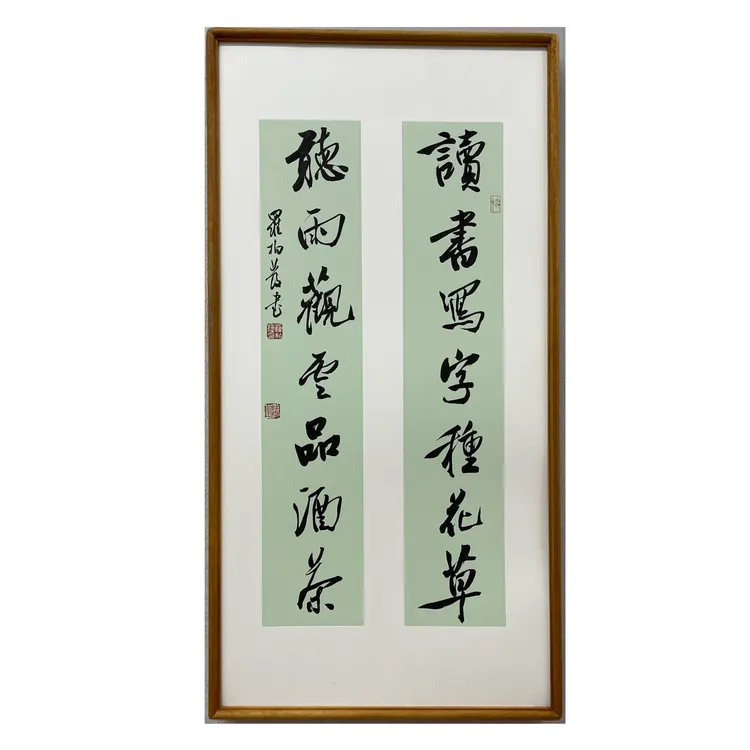 讀書寫字種花草
聽雨觀雲品酒茶
羅柏發書